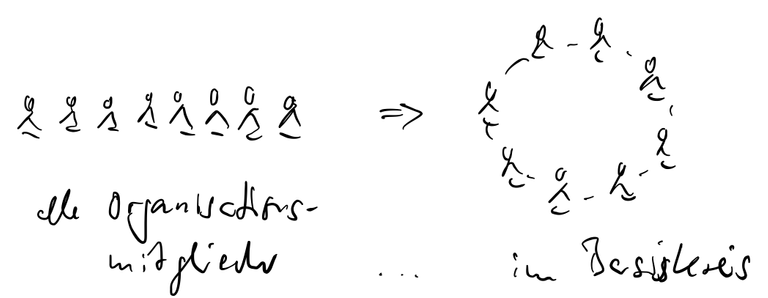 alle Organisations-
mitglieder ... im Basiskreis